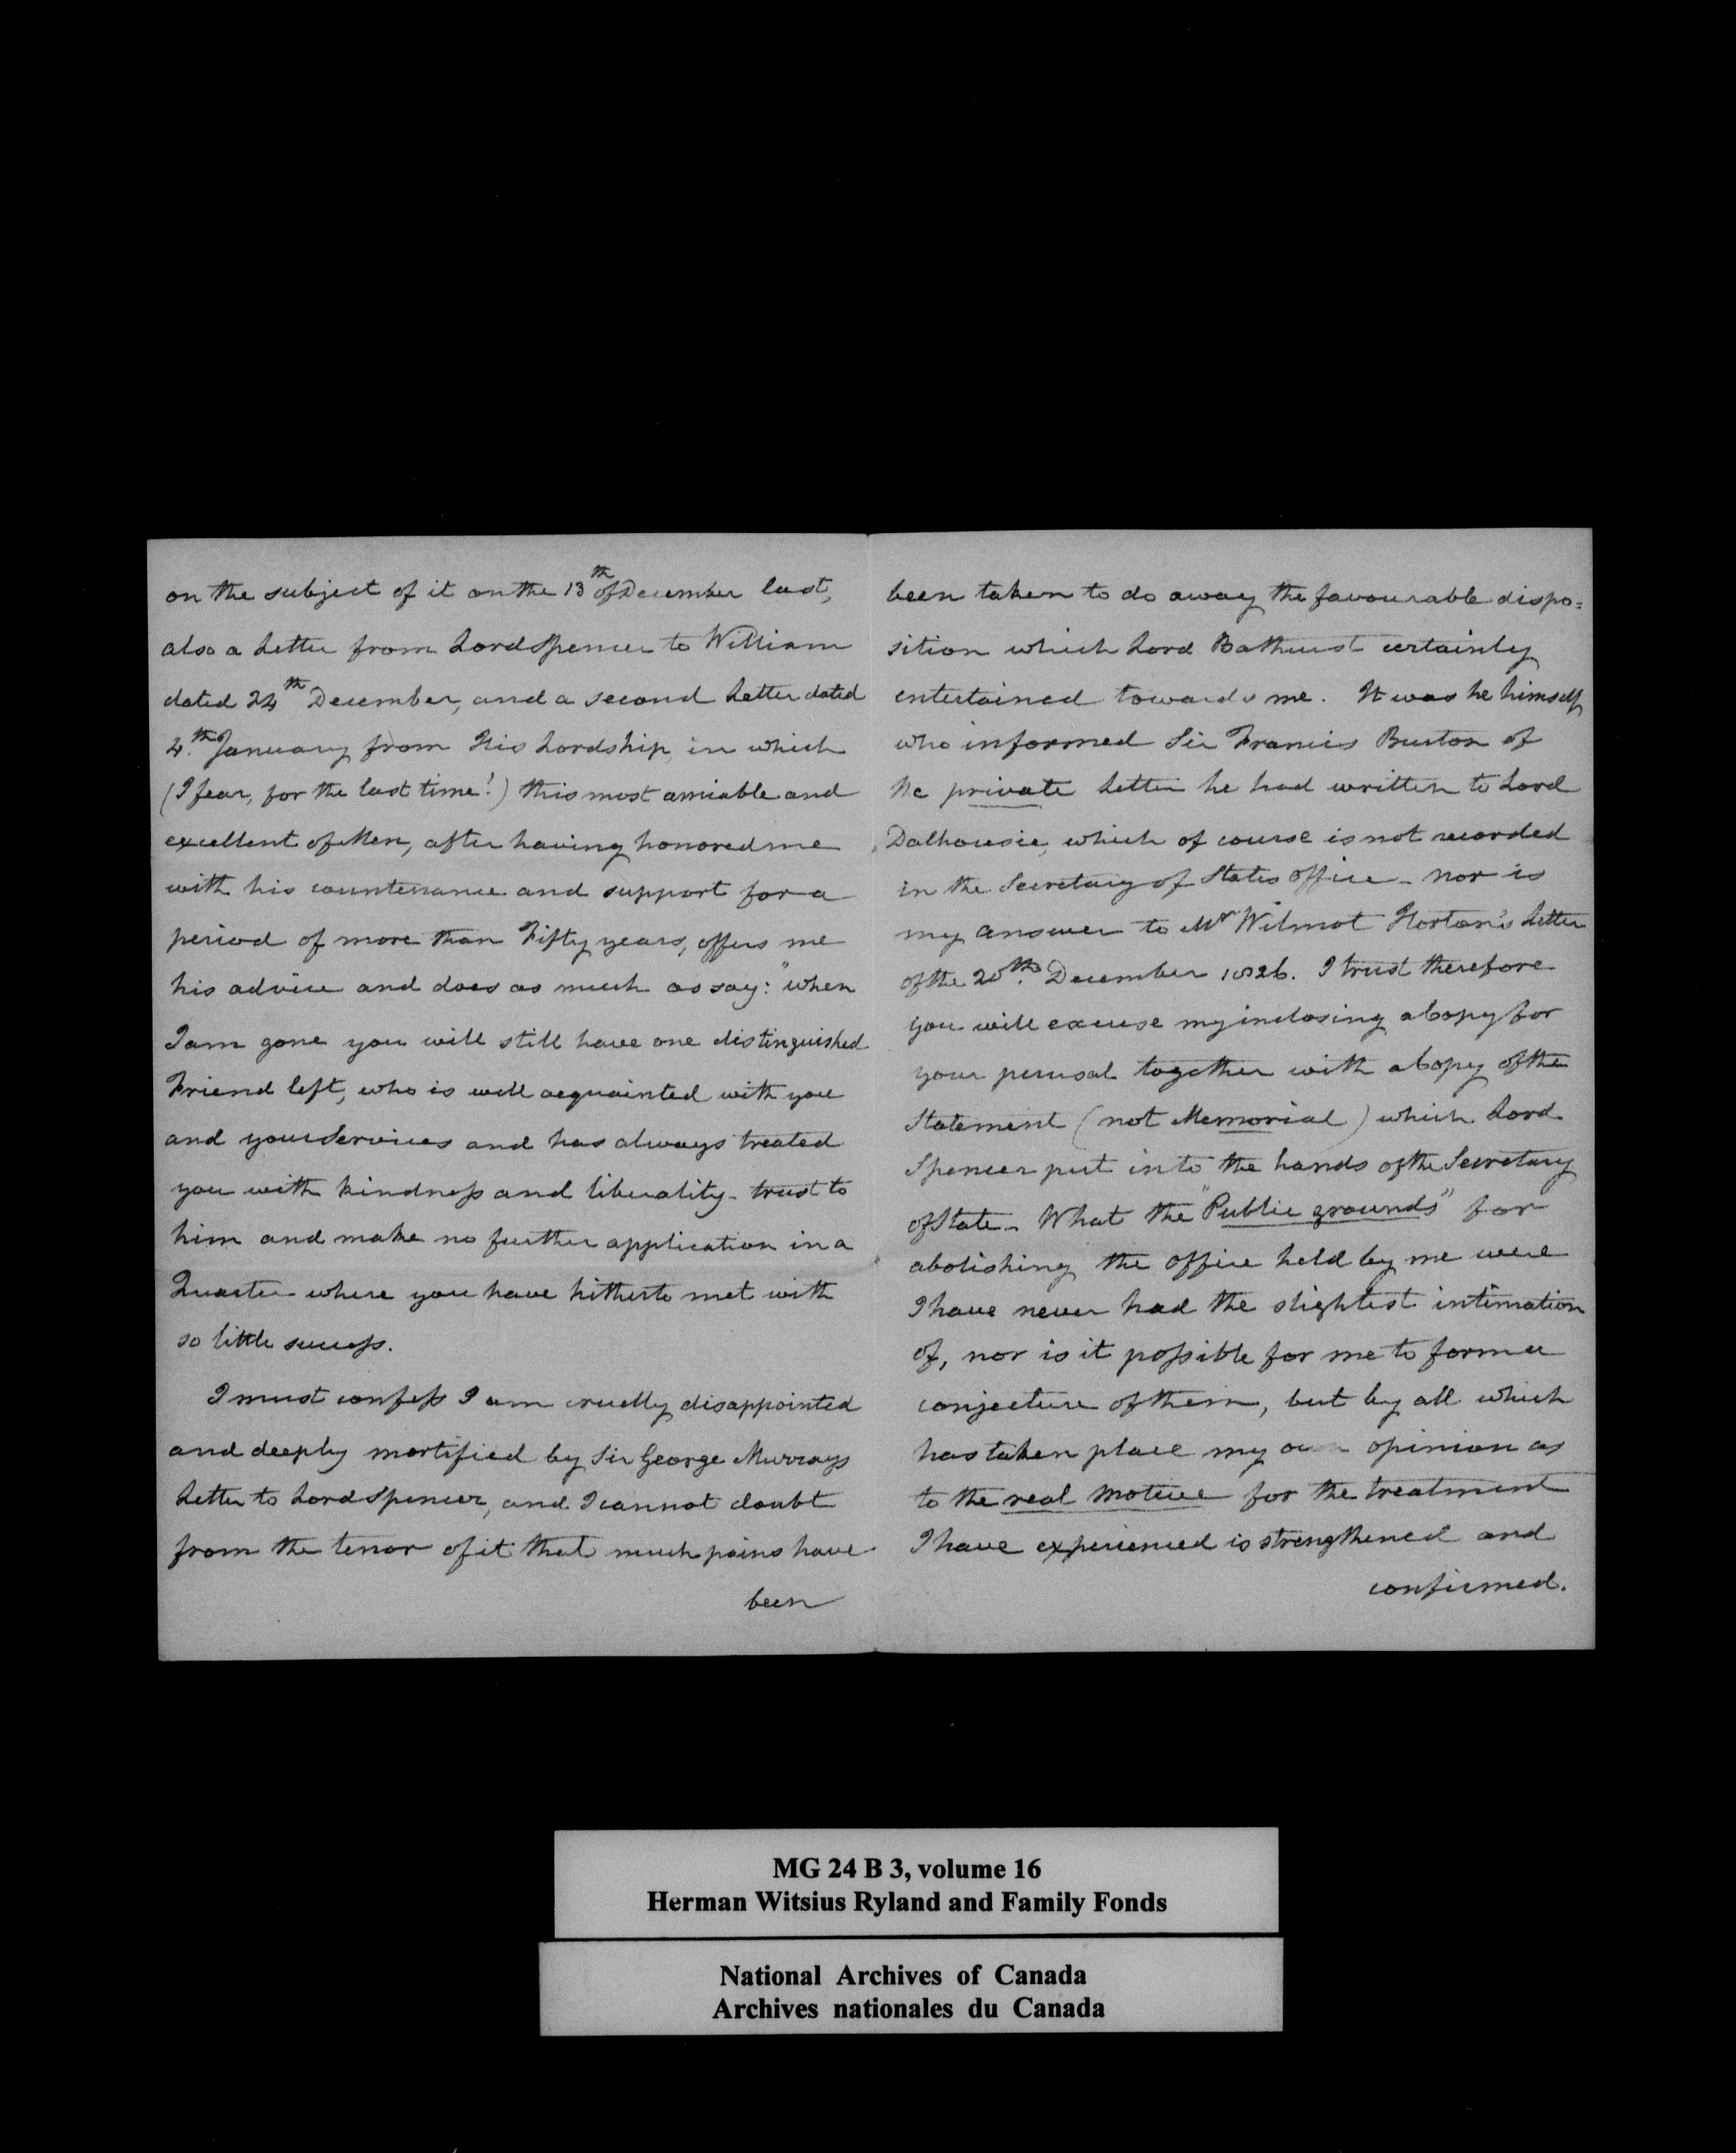 on the subject of it on the 13th of December last,
also a Letter from Lord Spencer to William
dated 24th December, and a second Letter dated
4th January from His Lordship, in which
(I fear, for the last time!) this most amiable and
excellent of Men, after having honored me
with his countenance and support for a
period of more than Fifty years, offers me
his advice and does as much as say: "when
I am gone you will still have one distinguished
Friend left, who is well acquainted with you
and your Services and has always treated
you with kindness and liberality - trust to
him and make no further application in a
Quarter where you have hitherto met with
so little success.
I must confess I am cruelly disappointed
and deeply mortified by Sir George Murrays
Letter to Lord Spencer, and I cannot doubt
from the tenor of it that much pains have
been
been taken to do away the favourable dispo=
sition which Lord Bathurst certainly
entertained towards me. It was he himself
who informed Sir Francis Burton of
the private Letter he had written to Lord
Dalhousie, which of course is not recorded
in the Secretary of States office - nor is
my answer to Mr Wilmot Horton's Letter
of the 20th December 1826. I trust therefore
you will excuse my inclosing a Copy for
your perusal together with a Copy of the
Statement (not Memorial) which Lord
Spencer put into the hands of the Secretary
of State - What the "Public grounds" for
abolishing the office held by me were
I have never had the slightest intimation
of, nor is it possible for me to form a
conjecture of them, but by all which
has taken place my own opinion as
to the real motive for the treatment
I have experienced is strengthened and
confirmed.
MG 24 B 3, volume 16
Herman Witsius Ryland and Family Fonds
National Archives of Canada
Archives nationales du Canada